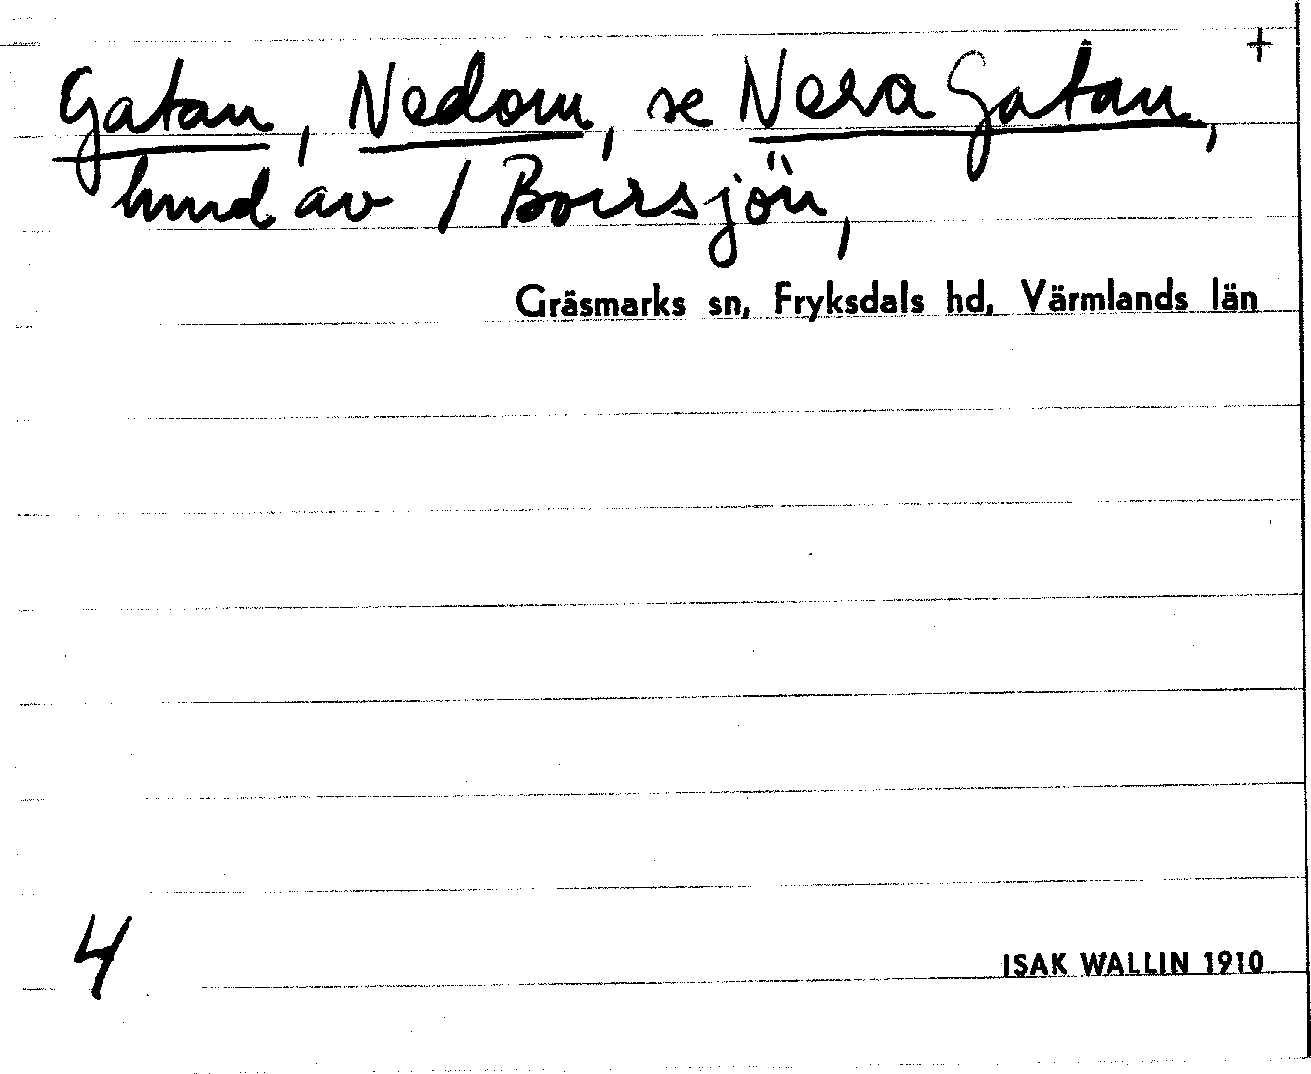 +
Gatan, Nedom, se Nera Gatan,
hmd av 1 Borrsjön,
Gräsmarks sn, Fryksdals hd, Värmlands län
4
ISAK WALLIN 1910